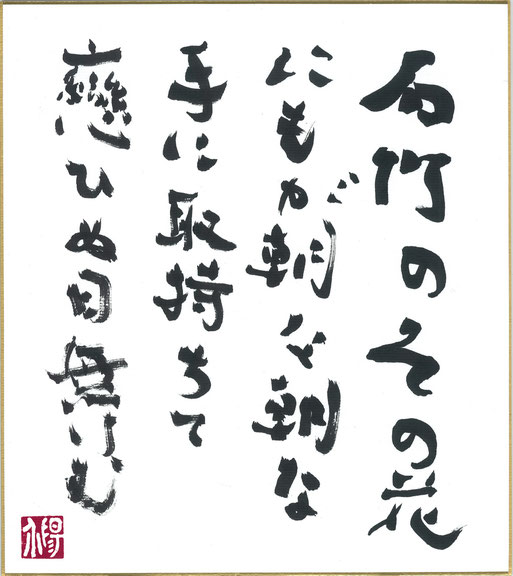 石竹のその花
にもが朝な朝な
手に取持ちて
戀ひぬ日無けむ